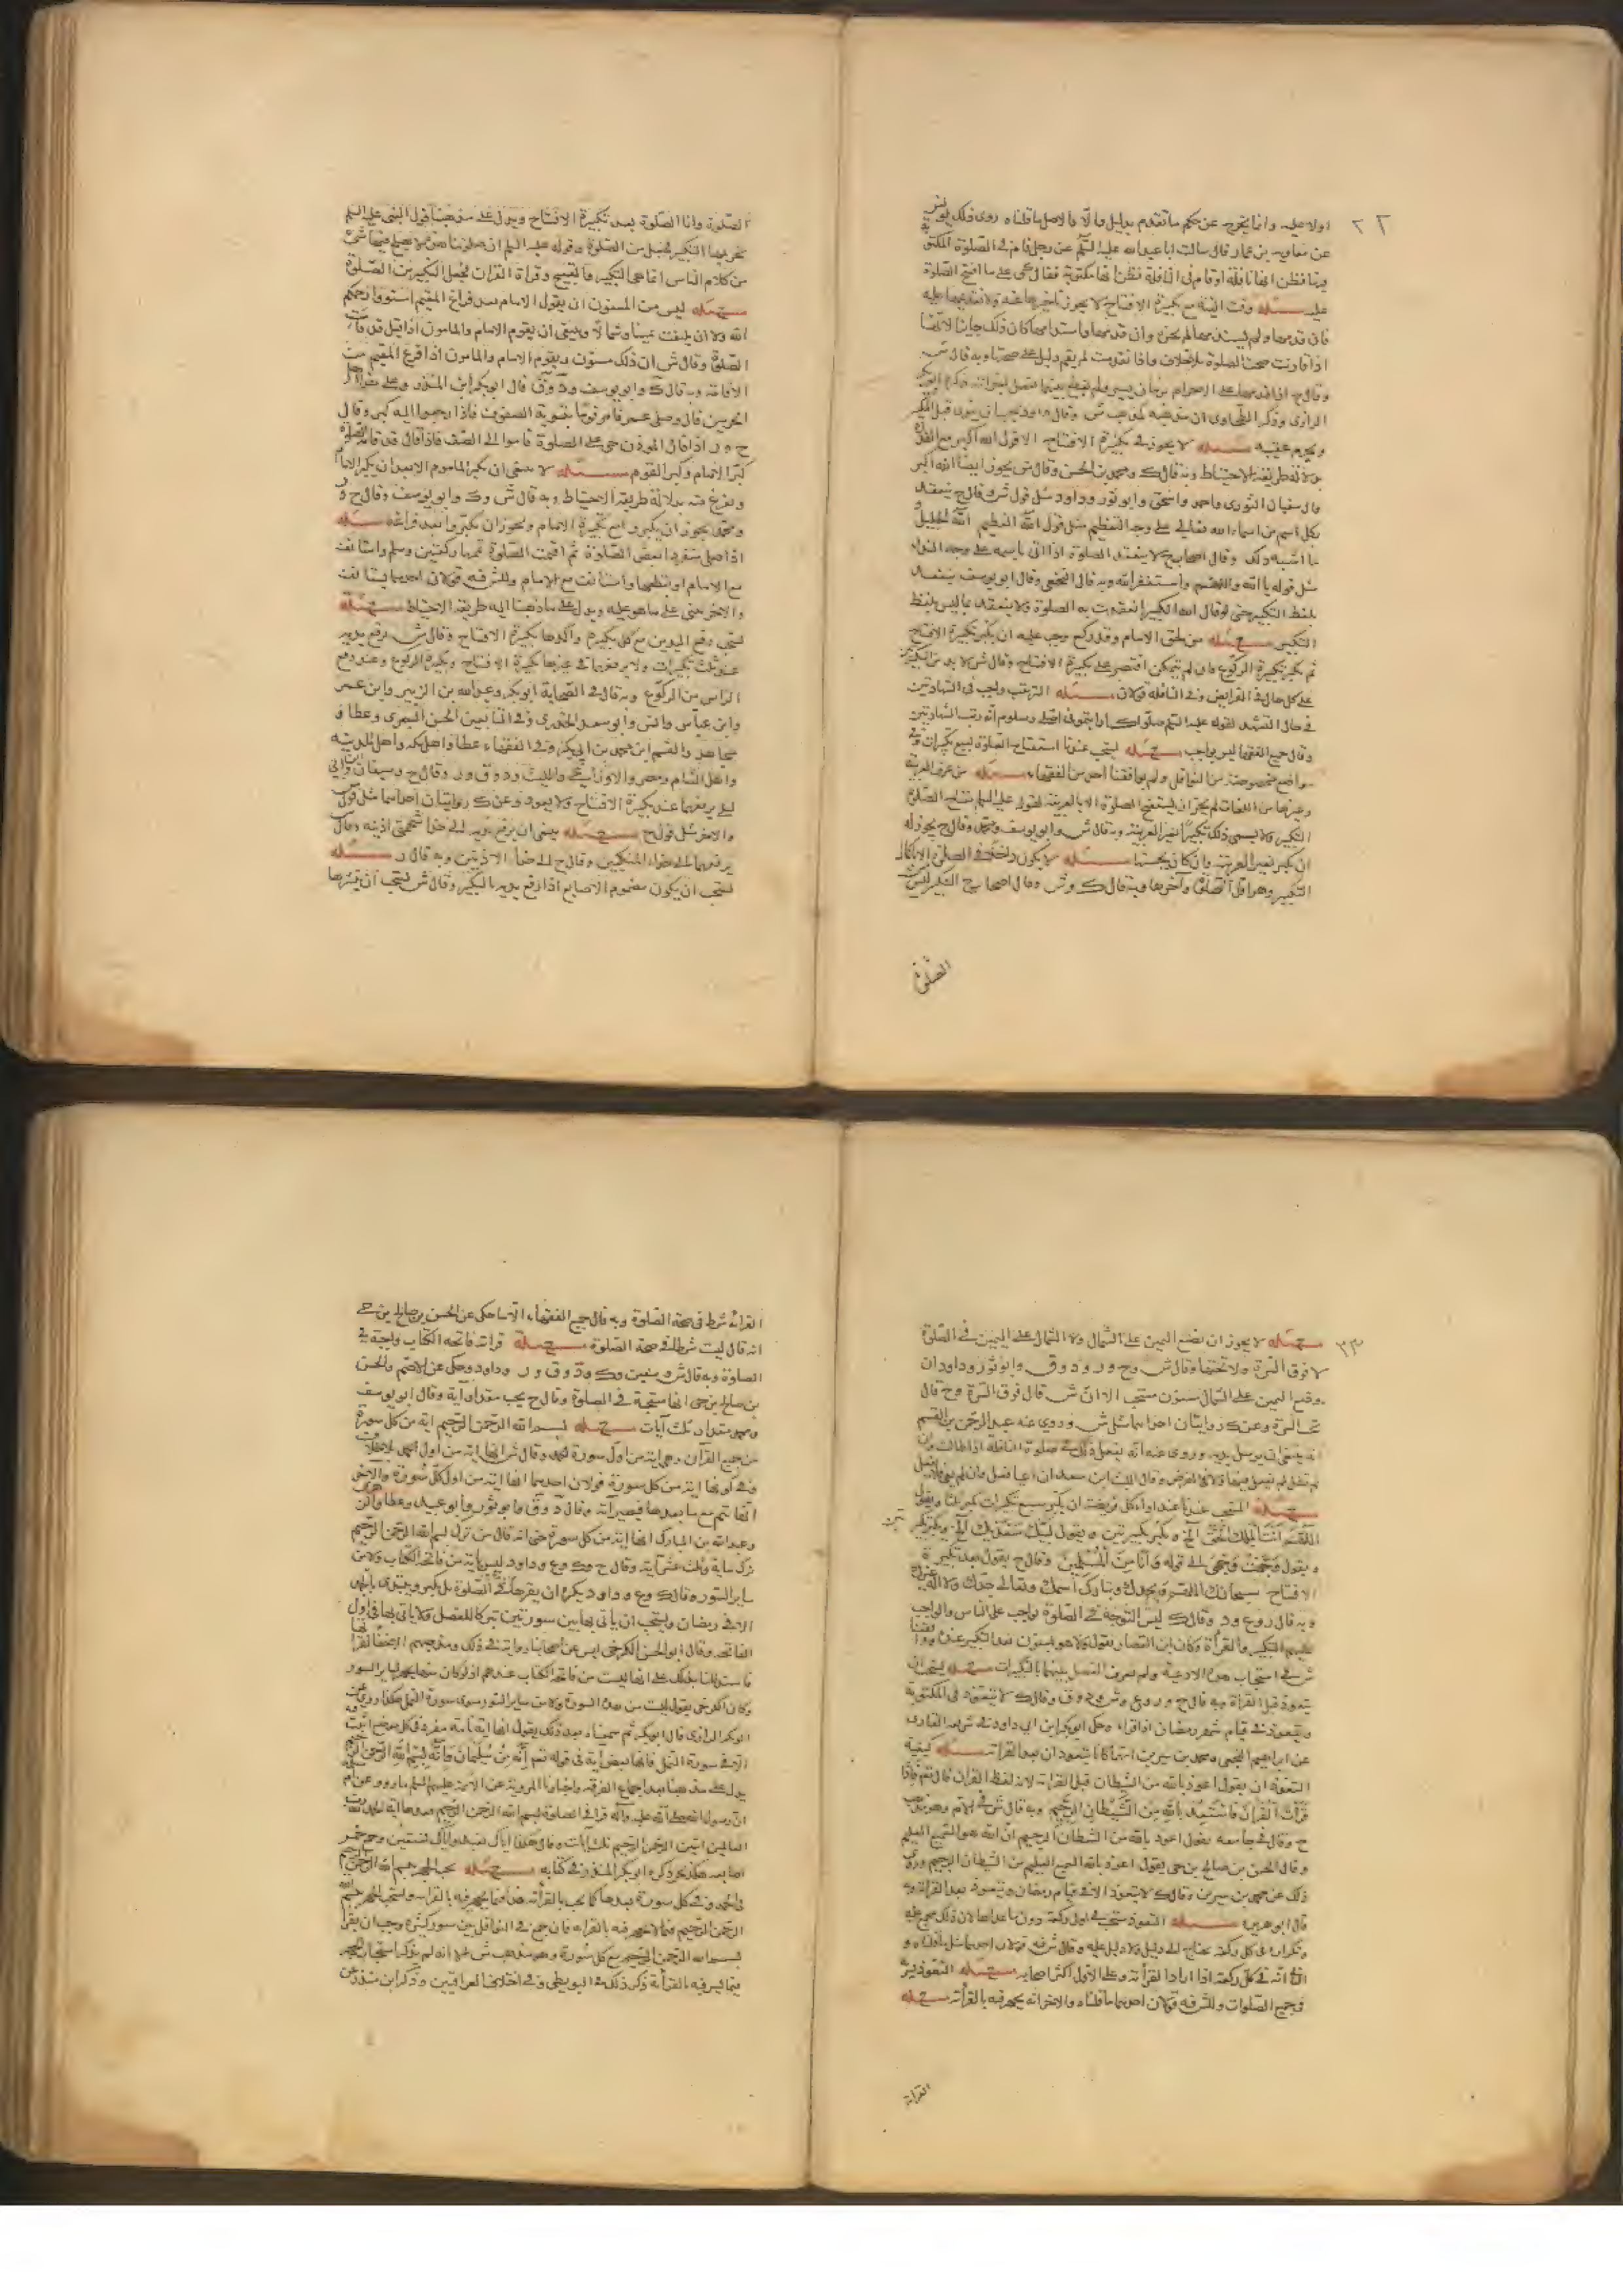 ٢٢
اولا عليه وانما يخرج عن حكم ما تقدم بدليل والا فالاصل ما قلناه روى ذلك يونس
عن معاوية بن عمار قال سالت ابا عبدالله عليه السلم عن رجل قام فى الصلوة المكتوبة
فظن انها نافلة او قام فى النافلة فظن انها مكتوبة فقال هى على ما افتتح الصلوة
عليه مسئله وقت النية مع تكبيرة الافتاح لا يجوز تاخيرها عنه ولا تقديمها عليه
فان قدمها ولم يستدمها لم يجز وان قدمها واستدامها كان ذلك جايزا لانها
اذا قارنت صحت الصلوة بلا خلاف واذا تقدمت لم يقم دليل على صحتها وبه قال ش
الرازى وذكر الطحاوى ان مذهبه كمذهب ش وقال داود يجب ان ينوى قبل التكبير
ويحرم عقيبه مسئله لا يجوز فى تكبيرة الافتاح الا قول الله اكبر مع القدرة
بدلالة طريقة الاحتياط وبه قال ك ومحمد بن الحسن وقال ش يجوز ايضا الله الاكبر
وقال سفيان الثورى واحمد واسحق وابو ثور وداود مثل قول ش وقال ح ينعقد
بكل اسم من اسماء الله تعالى على وجه التعظيم مثل قوله الله العظيم الله الجليل
وما اشبه ذلك وقال اصحابه لا ينعقد الصلوة اذا اتى باسمه على وجه النداء
مثل قوله يا الله واللهم واستغفر الله وبه قال النخعى وقال ابو يوسف ينعقد
بلفظ التكبير حتى لو قال الله الكبير انعقدت به الصلوة ولا ينعقد بما ليس بلفظ
التكبير مسئله من لحق الامام وقد ركع وجب عليه ان يكبر تكبيرة الافتاح
ثم يكبر تكبيرة الركوع فان لم يتمكن اقتصر على تكبيرة الافتاح وقال ش لا بد من التكبيرتين
على كل حال فى الفرايض وفى النافلة قولان مسئله الترتيب واجب فى الشهادتين
فى حال التشهد لقوله عليه السلم صلوا كما رايتمونى اصلى ومعلوم انه رتب الشهادتين
وقال جميع الفقهاء ليس بواجب مسئله يستحب عندنا استفتاح الصلوة بسبع تكبيرات وفى
مواضع مخصوصة من النوافل ولم يوافقنا احد من الفقهاء مسئله من عرف العربية
وغيرها من اللغات لم يجز ان يستفتح الصلوة الا بالعربية لقوله عليه السلم مفتاح الصلوة
التكبير ولا يسمى ذلك تكبيرا بغير العربية وبه قال ش وابو يوسف ومحمد وقال ح يجوز له
ان يكبر بغير العربية وان كان يحسنها مسئله لا يكون داخلا فى الصلوة الا باكمال
التكبير وهو اول الصلوة وآخرها وبه قال ك وش وقال اصحاب ح التكبير ليس من
الصلوة
الصلوة وانما الصلوة بعد تكبيرة الافتاح ويدل على مذهبنا قول النبى عليه السلم
تحريمها التكبير فجعل من الصلوة وقوله عليه السلم ان صلوتنا هذه لا يصلح فيها شئ
من كلام الناس انما هى التكبير والتسبيح وقراة القران فجعل التكبير من الصلوة
مسئله ليس من المسنون ان يقول الامام بعد فراغ المقيم استووا رحمكم
الله ولا ان يلتفت يمينا وشمالا وينبغى ان يقوم الامام والمامون اذا قيل قد قامت
الصلوة وقال ش ان ذلك مسنون ويقوم الامام والمامون اذا فرغ المقيم من
الاقامة وبه قال ك وابو يوسف ود وق قال ابو بكر ابن المنذر وعلى هذا اهل
الحرمين قال وصلى عمر فامر قوما بتسوية الصفوف فاذا رجعوا اليه كبر وقال
ح و ر اذا قال المؤذن حى على الصلوة قاموا الى الصف فاذا قال قد قامت الصلوة
كبر الامام وكبر القوم مسئله لا ينبغى ان يكبر الماموم الا بعد ان يكبر الامام
ويفرغ منه بدلالة طريقة الاحتياط وبه قال ش وك وابو يوسف وقال ح و
ومحمد يجوز ان يكبر مع تكبيرة الامام ويجوز ان يكبروا بعد فراغه مسئله
اذا صلى منفردا بعض الصلوة ثم اقيمت الصلوة تممها ركعتين وسلم واستانف
مع الامام او قطعها واستانف مع الامام وللش فيه قولان احدهما يستانف
والاخر يبنى على ما هو عليه ويدل على ما ذهبنا اليه طريقة الاحتياط مسئله
يستحب رفع اليدين مع كل تكبيرة وآكدها تكبيرة الافتاح وقال ش يرفع يديه
عند ثلث تكبيرات ولا يرفعهما فى غيرها تكبيرة الافتاح وتكبيرة الركوع وعند رفع
الراس من الركوع وبه قال فى الصحابة ابو بكر وعبدالله بن الزبير وابن عمر
وابن عباس وانس وابو سعيد الخدرى وفى التابعين الحسن البصرى وعطا و
مجاهد والقسم ابن محمد بن ابى بكر وفى الفقهاء عطا واهل مكة واهل المدينة
واهل الشام ومصر والاوزاعى والليث ود وق ور وقال ح وسفيان وابن ابى
ليلى يرفعهما عند تكبيرة الافتاح ولا يعود وعن ك روايتان احدهما مثل قول ش
والاخر مثل قول ح مسئله ينبغى ان يرفع يديه الى حذا شحمتى اذنيه وقال ش
يرفعهما الى حذاء المنكبين وقال ح الى حذاء الاذنين وبه قال ر مسئله
يستحب ان يكون مضموم الاصابع اذا رفع يديه بالتكبير وقال ش يستحب ان ينشرها
٢٣
مسئله لا يجوز ان يضع اليمين على الشمال ولا الشمال على اليمين فى الصلوة
لا فوق السرة ولا تحتها وقال ش وح ور ود وق وابو ثور وداود ان
وضع اليمين على الشمال مسنون مستحب الا ان ش قال فوق السرة وح قال
تحت السرة وعن ك روايتان احدهما مثل ش وروى عنه عبد الرحمن بن القسم
انه ينبغى ان يرسل يديه وروى عنه انه يفعل ذلك فى صلوة النافلة اذا طالت وان
لم تطل لم يفعل فيها ولا فى الفرض وقال الليث ابن سعد ان اعيا فعل وان لم يعى لم يفعل
مسئله المستحب عندنا عند اداء كل فريضة ان يكبر سبع تكبيرات يكبر ثلثا ويقول
اللهم انت الملك الحق الخ ويكبر تكبيرتين ويقول لبيك وسعديك الخ ويكبر تكبيرتين
ويقول وجهت وجهى الى قوله وانا من المسلمين وقال ح يقول بعد تكبيرة
الافتاح سبحانك اللهم وبحمدك وتبارك اسمك وتعالى جدك ولا اله غيرك
وبه قال ر وع ود وقال ك ليس التوجه فى الصلوة بواجب على الناس والواجب
عليهم التكبير والقراة وكان ابن القصار يقول ولا هو بمسنون بعد التكبير عنده ووافقنا
ش فى استحباب هذه الادعية ولم يعرف الفصل بينهما بالتكبيرات مسئله يستحب ان
يتعوذ قبل القراة وبه قال ح ور وع وش ود وق وقال ك لا يتعوذ فى المكتوبة
ويتعوذ فى قيام شهر رمضان اذا قراء وحكى ابو بكر ابن ابى داود فى شريعة القارى
عن ابراهيم النخعى ومحمد بن سيرين انهما كانا يتعوذان بعد القراة مسئله كيفية
التعوذ ان يقول اعوذ بالله من الشيطان قبل القراة لانه لفظ القران قال تعالى فاذا
قرأت القرآن فاستعذ بالله من الشيطان الرجيم وبه قال ش فى الام وهو مذهب
ح وقال فى جامعه يقول اعوذ بالله من الشيطان الرجيم ان الله هو السميع العليم
وقال الحسن بن صالح بن حى يقول اعوذ بالله السميع العليم من الشيطان الرجيم وروى
ذلك عن محمد بن سيرين وقال ك لا يتعوذ الا فى قيام رمضان ويتعوذ بعد القراة وبه
قال ابو هريرة مسئله التعوذ مستحب فى اول ركعة دون ما عداها لان ذلك مجمع عليه
وتكراره فى كل ركعة يحتاج الى دليل ولا دليل عليه وقال ش فيه قولان احدهما مثل ما قلناه و
الثانى انه فى كل ركعة اذا اراد القراة وعلى الاول اكثر اصحابه مسئله التعوذ يسر
فى جميع الصلوات وللش فيه قولان احدهما ما قلناه والاخر انه يجهر فيه بالقراة مسئله
القراة
القراة شرط فى صحة الصلوة وبه قال جميع الفقهاء الا ما حكى عن الحسن بن صالح بن حى
انه قال ليست شرطا فى صحة الصلوة مسئله قراة فاتحة الكتاب واجبة فى
الصلوة وبه قال ش وسفين وك ود وق ور وداود وحكى عن الاصم والحسن
بن صالح بن حى انها مستحبة فى الصلوة وقال ح يجب مقدار آية وقال ابو يوسف
ومحمد مقدار ثلث آيات مسئله بسم الله الرحمن الرحيم اية من كل سورة
من جميع القرآن وهى اية من اول سورة الحمد وقال ش انها اية من اول الحمد بلا خلاف
وفى كونها اية من كل سورة قولان احدهما انها اية من اول كل سورة والآخر
انها تتم مع ما بعدها فيصير آية وقال د وق وابو ثور وابو عبيد وعطا والزهرى
وعبدالله بن المبارك انها اية من كل سورة حتى انه قال من ترك بسم الله الرحمن الرحيم
ترك ماية وثلث عشر آية وقال ح وك وع وداود ليس باية من فاتحة الكتاب ولا من
ساير السور وقال ك وع وداود يكره ان يقرءها فى الصلوة بل يكبر ويبتدى بالحمد
الا فى رمضان ويستحب ان ياتى بها بين سورتين تبركا للفصل ولا ياتى بها فى اول
الفاتحة وقال ابو الحسن الكرخى ليس عن اصحابنا رواية فى ذلك ومذهبهم اخفاؤها
فاستدللنا بذلك على انها ليست من فاتحة الكتاب عندهم اذ لو كان منها يجهر لساير السور
وكان الكرخى يقول ليست من هذه السورة ولا من ساير السور سوى سورة النمل هكذا روى عنه
ابو بكر الرازى قال ابو بكر ثم سمعناه بعد ذلك يقول انها اية تامة مفردة فى كل موضع اثبتت
الا فى سورة النمل فانها بعض آية فى قوله تعالى انه من سليمان وانه بسم الله الرحمن الرحيم
يدل على مذهبنا بعد اجماع الفرقة واخبارنا المروية عن الائمة عليهم السلم ما روى عن ام سلمة
ان رسول الله صلى الله عليه وآله قرا فى الصلوة بسم الله الرحمن الرحيم فعدها اية الحمد لله رب
العالمين ايتين الرحمن الرحيم ثلث آيات وقال هكذا اياك نعبد واياك نستعين وجمع خمس
اصابعه هكذا ذكره ابو بكر المنذر فى كتابه مسئله يجب الجهر ببسم الله الرحمن الرحيم
فى الحمد وفى كل سورة بعدها كما يجب بالقراة هذا فيما يجهر فيه بالقراة ويستحب الجهر ببسم الله
الرحمن الرحيم فيما لا يجهر فيه بالقراة فان جمع فى النوافل بين سور كثيرة وجب ان يقرا
بسم الله الرحمن الرحيم مع كل سورة وهو مذهب ش غير انه لم يذكر استحباب الجهر
فيما يسر فيه بالقراة ذكر ذلك فى البويطى وفى اختلاف العراقيين وذكر ابن منذر عن